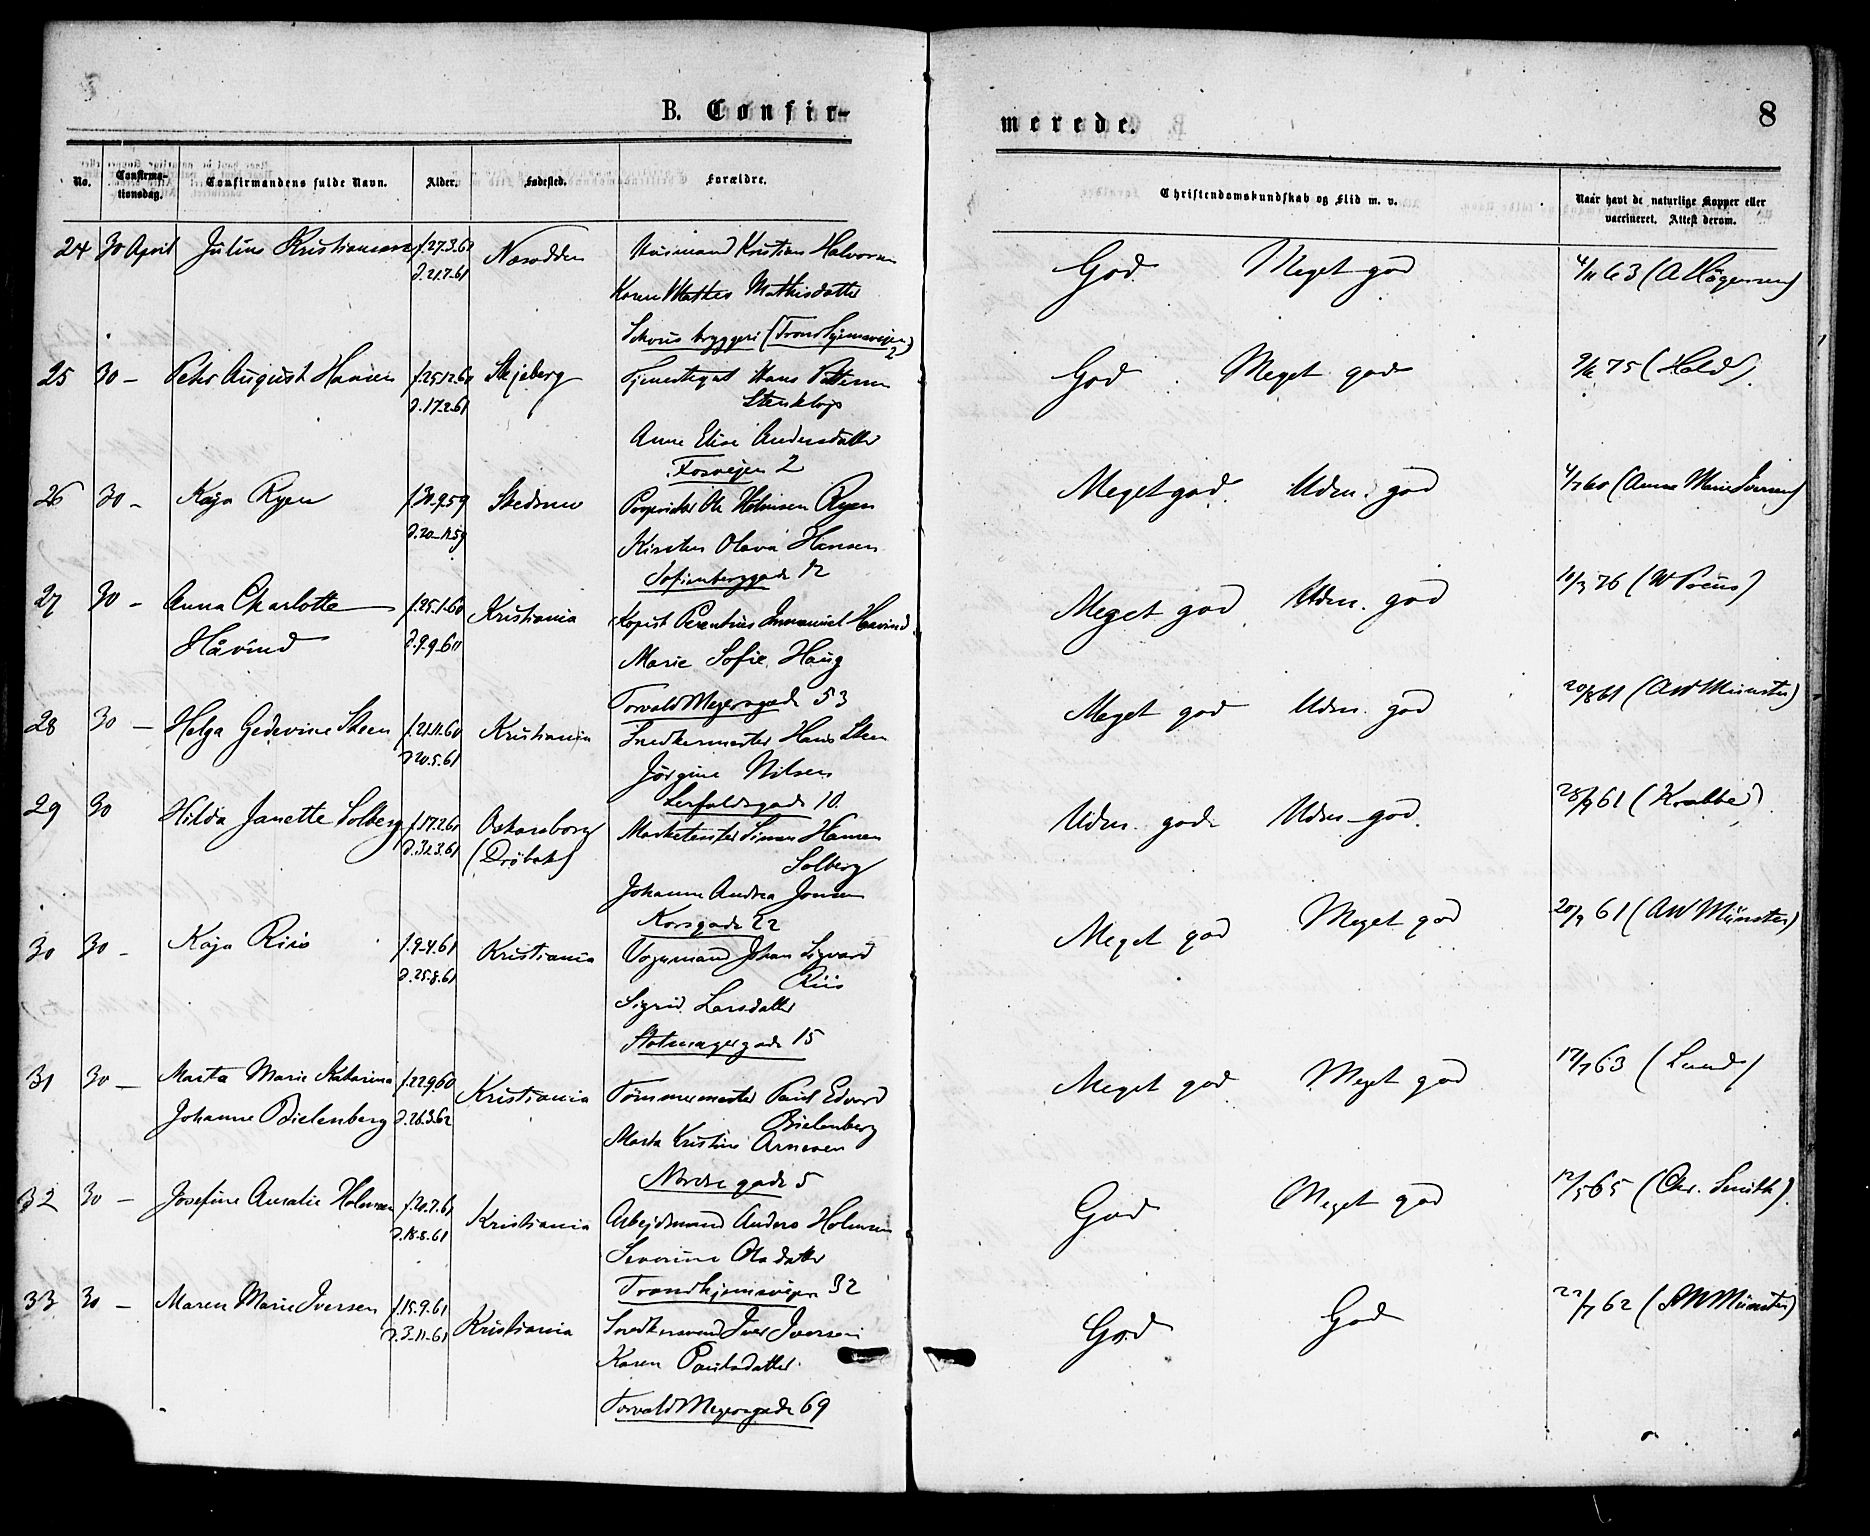 B. Confir-
merede.
8
No.
Confirma-
tionsdag.
Confirmandens fulde Navn.
Alder.
Fødested.
Forældre.
Christendomskundskab og Flid m. v.
Naar havt de naturlige Kopper eller
vaccineret. Attest derom.
24 30 April Julius Kristiansen f. 27.3.61 Nesodden Husmand Kristian Halvorsen God Meget god 4/11 63 (A Hågensen)
d. 21.7.61
Karen Mathea Mathisdatter
Schous bryggeri (Trondhjemsveien 2)
25 30 — Peter August Hansen f. 25.12.60 Skjeberg Tjenestegut Hans Pettersen God Meget god 75 (Hold).
d. 17.2.61
Stenklöp
Anne Elise Andersdatter
Fosveien 2
26 30 — Kaja Ryen f. 31.9.59 Skedsmo Proprietær Ole Helmisen Ryen Meget god. Udm. god 4/7 60 (Anna Marie Iversen)
d. 20-11.59
Kirsten Olava Hansen
Sofienberggade 12
27 30 — Anna Charlotte f. 25.1.60 Kristiania Kopist Terentius Immanuel Haavind Meget god Udm. god 10/3 76 (W Poeus)
Håvind d. 9.9.60
Marie Sofie Haug
Torvald Meyersgade 53
28 30 — Helga Gedevine Skeen f. 21.11.60 Kristiania Snedkermester Hans Skeen Meget god Udm. god 20/8 61 (AW Münster)
d. 20.5.61
Jörgine Nilsen
Lerfaldsgade 10.
29 30 Hilda Janette Solberg f. 17.2.61 Oskarsborg Marketenter Simon Hansen Udm. god Udm. god. 28/9 61 (Krabbe)
d. 32.3.61 (Dröbak)
Solberg
Johanne Andrea Jonsen
Korsgade 22
30 30 — Kaja Riis f. 9-4.61 Kristiania Vognmand Johan Sigvard Meget god Meget god 20/9 61 (AW Münster)
d. 25.8.61
Riis
Sigrid Larsdatter
Stolmagergade 15
31 30 — Marta Marie Katarina f. 22.9.60 Kristiania Tömmermester Paul Edvard Meget god Meget god 17/7 63 (Lund)
Johanne Bielenberg d. 26.3.62
Bielenberg
Marta Kristine Arnesen
Nordre gade 5
32 30 — Josefine Amalie Holmsen f. 20.7.61 Kristiania Arbejdsmand Anders Holmsen God Meget god 12/5 65 (Chr. Smith).
d. 18.8.61
Severine Olsdatter
Trondhjemsveien 32
33 30 — Maren Marie Iversen f. 15.9.61 Kristiania Snedkersvend Iver Iversen God God 22/7 62 (AW Münster)
d. 3-11-61
Karen Paulsdatter.
Torvald Meyersgade 69